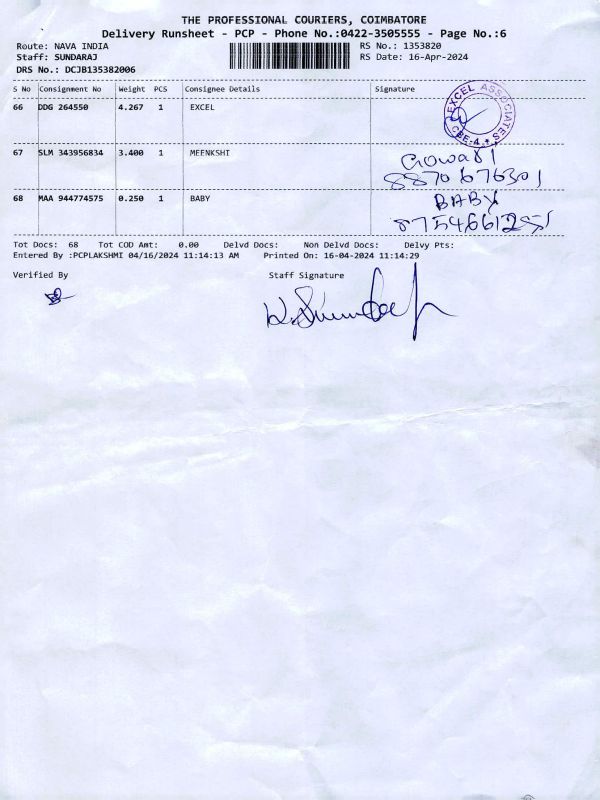 THE PROFESSIONAL COURIERS, COIMBATORE
Delivery Runsheet - PCP - Phone No.:0422-3505555 - Page No.:6
Route: NAVA INDIA RS No.: 1353820
Staff: SUNDARAJ RS Date: 16-Apr-2024
DRS No.: DCJB135382006
S No Consignment No Weight PCS Consignee Details Signature
66 DDG 264550 4.267 1 EXCEL
EXCEL ASSOCIATES CBE-4
67 SLM 343956834 3.400 1 MEENKSHI
8870676301
68 MAA 944774575 0.250 1 BABY BABY
Tot Docs: 68 Tot COD Amt: 0.00 Delvd Docs: Non Delvd Docs: Delvy Pts:
Entered By :PCPLAKSHMI 04/16/2024 11:14:13 AM Printed On: 16-04-2024 11:14:29
Verified By Staff Signature